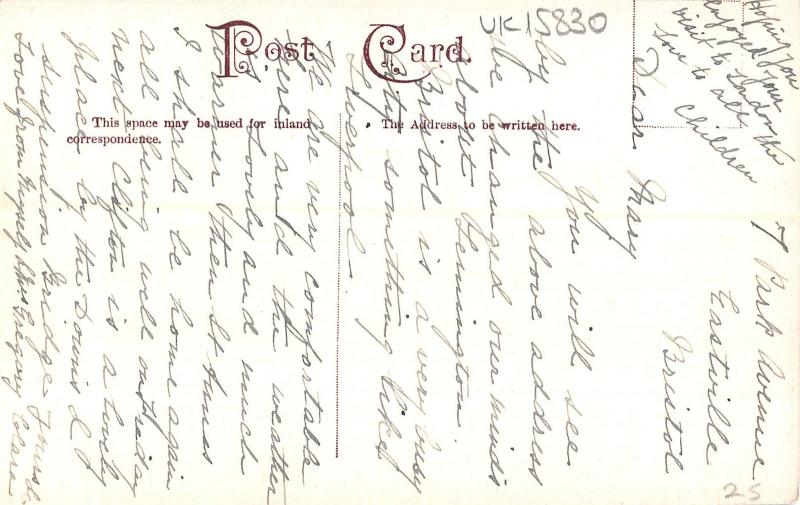 UK15830
Post Card.
This space may be used for inland
correspondence.
The Address to be written here.
7 Park Avenue
Eastville
Bristol
Dear Mary
You will see
by the above address
we changed our minds
about Lemington
Bristol is a very busy
City something like
Liverpool.
We are very comfortable
here and the weather
is lovely and much
warmer then St Annes
I shall be home again
all being well on Friday
next Clifton is a lovely
place by the Downs &
Suspension Bridge
Love from Myself Gregory Clara
Hoping you
enjoyed your
visit to London
love to all
Children
25